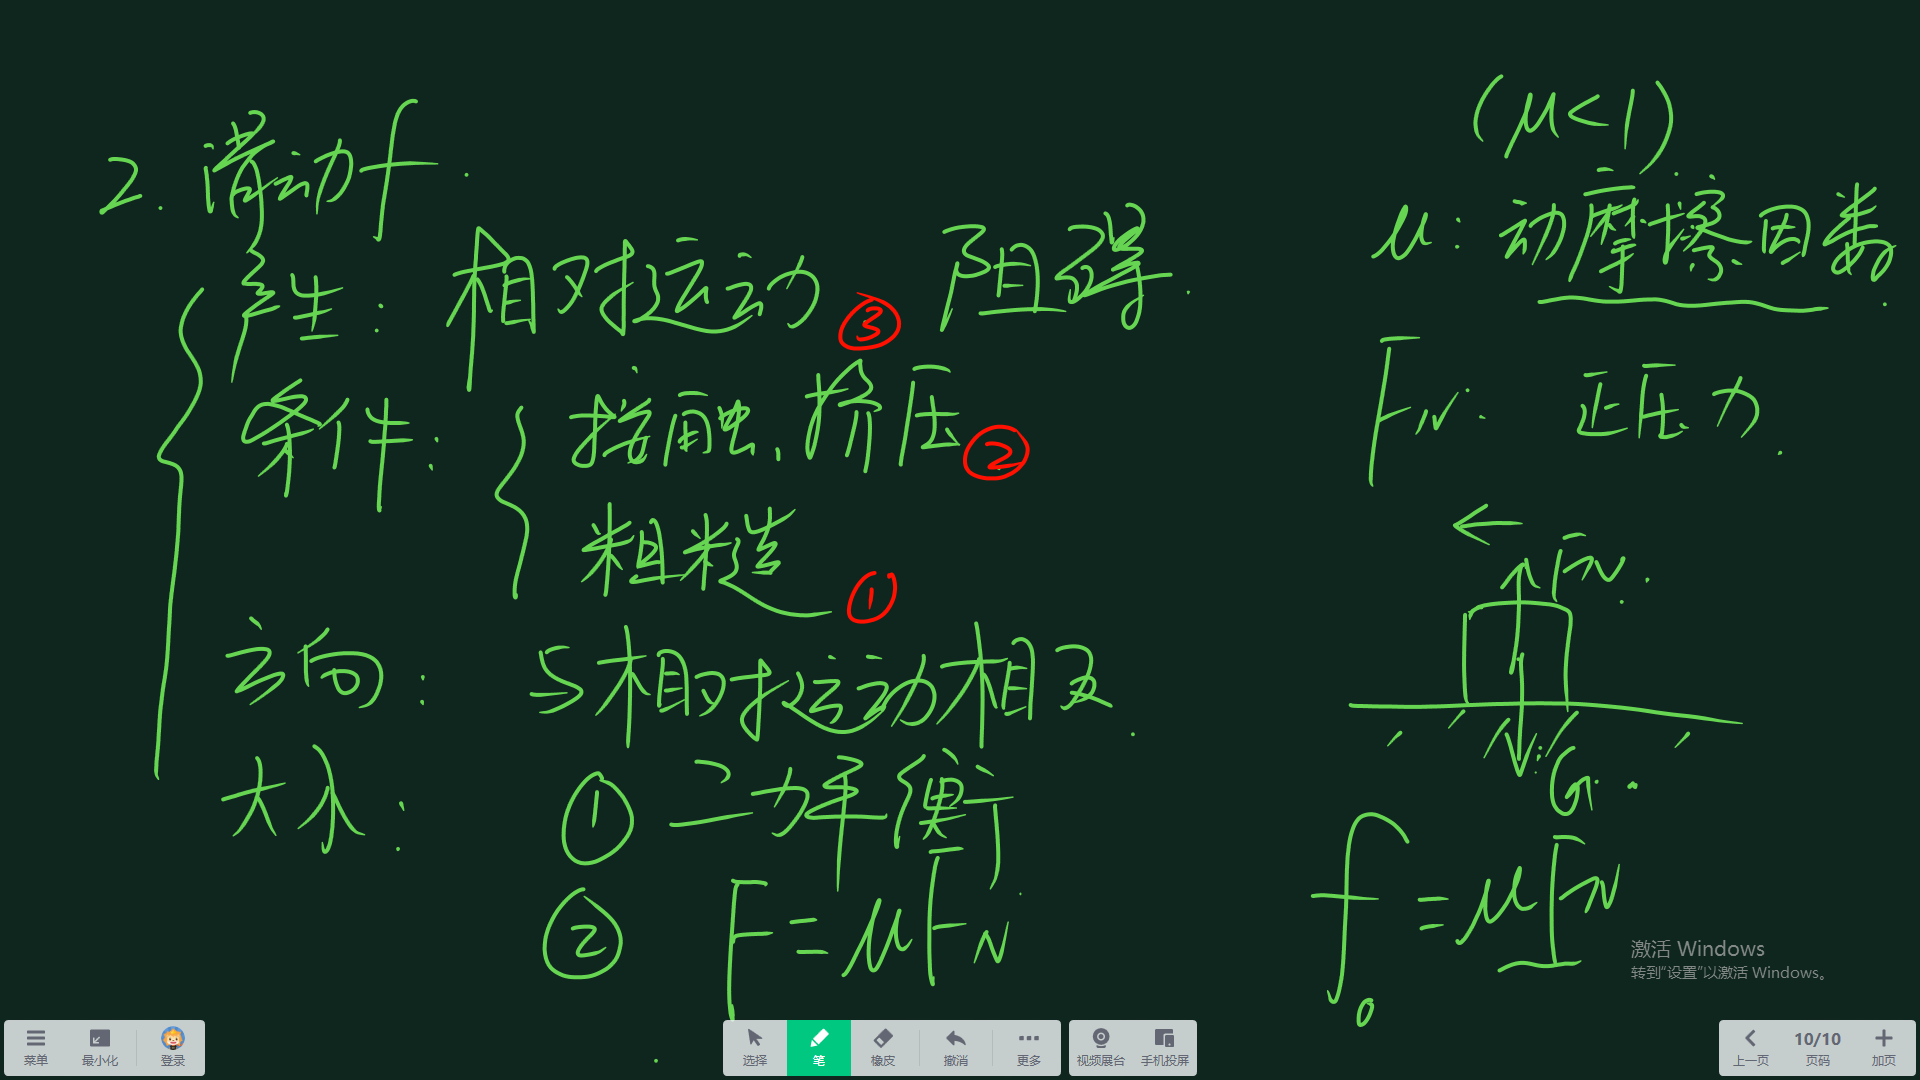 2. 滑动f.
产生: 相对运动 ③ 阻碍.
条件: 接触、挤压 ②
粗糙 ①
方向: 与相对运动相反.
大小: ① 二力平衡
② F=μFN
(μ<1)
μ: 动摩擦因数.
FN: 正压力.
FN
G
f=μFN
激活 Windows
转到“设置”以激活 Windows。
菜单 最小化 登录
选择 笔 橡皮 撤消 更多
视频展台 手机投屏
上一页 10/10 页码 加页